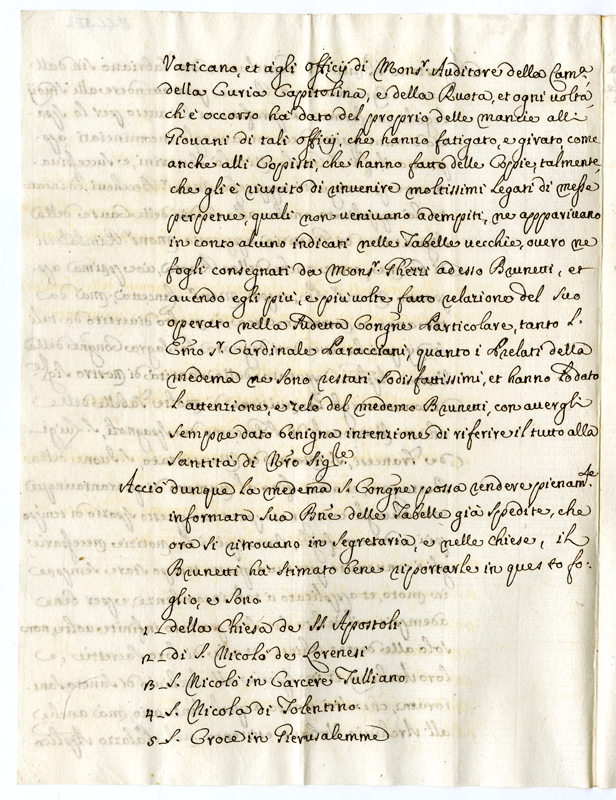 Vaticano, et agli officij di Monsʳ Auditore della Camᵃ
della Curia Capitolina, e della Ruota, et ogni volta
ch'è occorso ha dato del proprio delle mancie alli
Giovani di tali officij, che hanno fatigato, e girato come
anche alli Coppisti, che hanno fatto delle Coppie, talmente,
che gli è riuscito di rinvenire moltissimi legati di messe
perpetue, quali non venivano adempiti, ne apparivano
in conto alcuno indicati nelle Tabelle vecchie, overo ne
fogli consegnati da Monsʳ Gherri ad esso Brunetti, et
avendo egli più, e più volte fatto relazione del suo
operato nella sudetta Congñe Particolare, tanto l'
Emõ Sʳ Cardinale Paracciani, quanto i Prelati della
medema ne sono restati sodisfattissimi, et hanno lodato
l'attenzione, e zelo del medemo Brunetti, con avergli
sempre dato benigna intenzione di riferire il tutto alla
Santità di Nr̃o Sigʳᵉ
Acciò dunque la medema S. Congñe possa rendere pienamᵗᵉ
informata Sua Bñe delle Tabelle già spedite, che
ora si ritrovano in Segretaria, e nelle chiese, il
Brunetti ha stimato bene riportarle in questo fo-
glio, e sono
1 della Chiesa de SS. Apostoli
2 di S. Nicolò de Lorenesi
3 S. Nicolò in Carcere Tulliano
4 S. Nicola di Tolentino
5 S. Croce in Gierusalemme